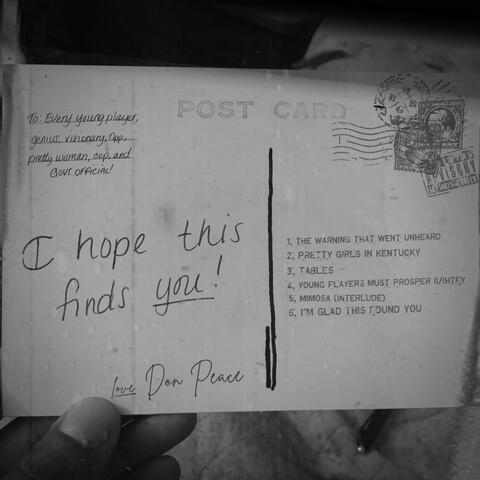 POST CARD
To: Every young player,
genius, visionary, Opp,
pretty woman, cop, and
GOVT OFFICIAL!
I hope this
finds you!
love Don Peace
1, THE WARNING THAT WENT UNHEARD
2, PRETTY GIRLS IN KENTUCKY
3, TABLES
4, YOUNG PLAYERS MUST PROSPER II/IHTFY
5, MIMOSA (INTERLUDE)
6, I'M GLAD THIS FOUND YOU